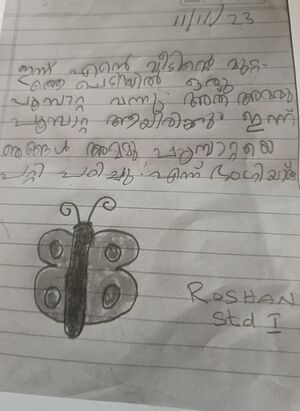 11/11/23
ഇന്ന് എന്റെ വീട്ടിന്റെ മുറ്റ-
ത്തെ ചെടിയിൽ ഒരു
പൂമ്പാറ്റ വന്നു. അത്
പൂമ്പാറ്റ ആയിരിക്കും ഇന്ന്
ഞങ്ങൾ പൂമ്പാറ്റയെ
പറ്റി പഠിച്ചു. എന്ത്
ROSHAN
Std I